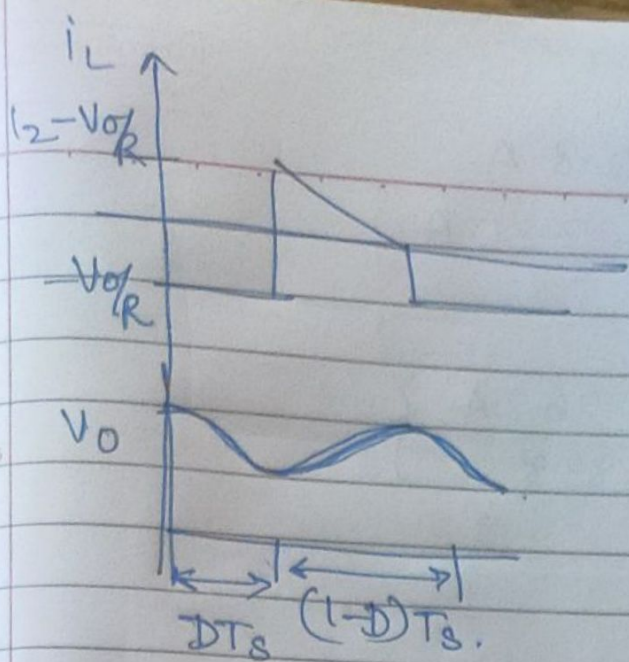 iL
I2-Vo/R
-Vo/R
Vo
DTs (1-D)Ts.